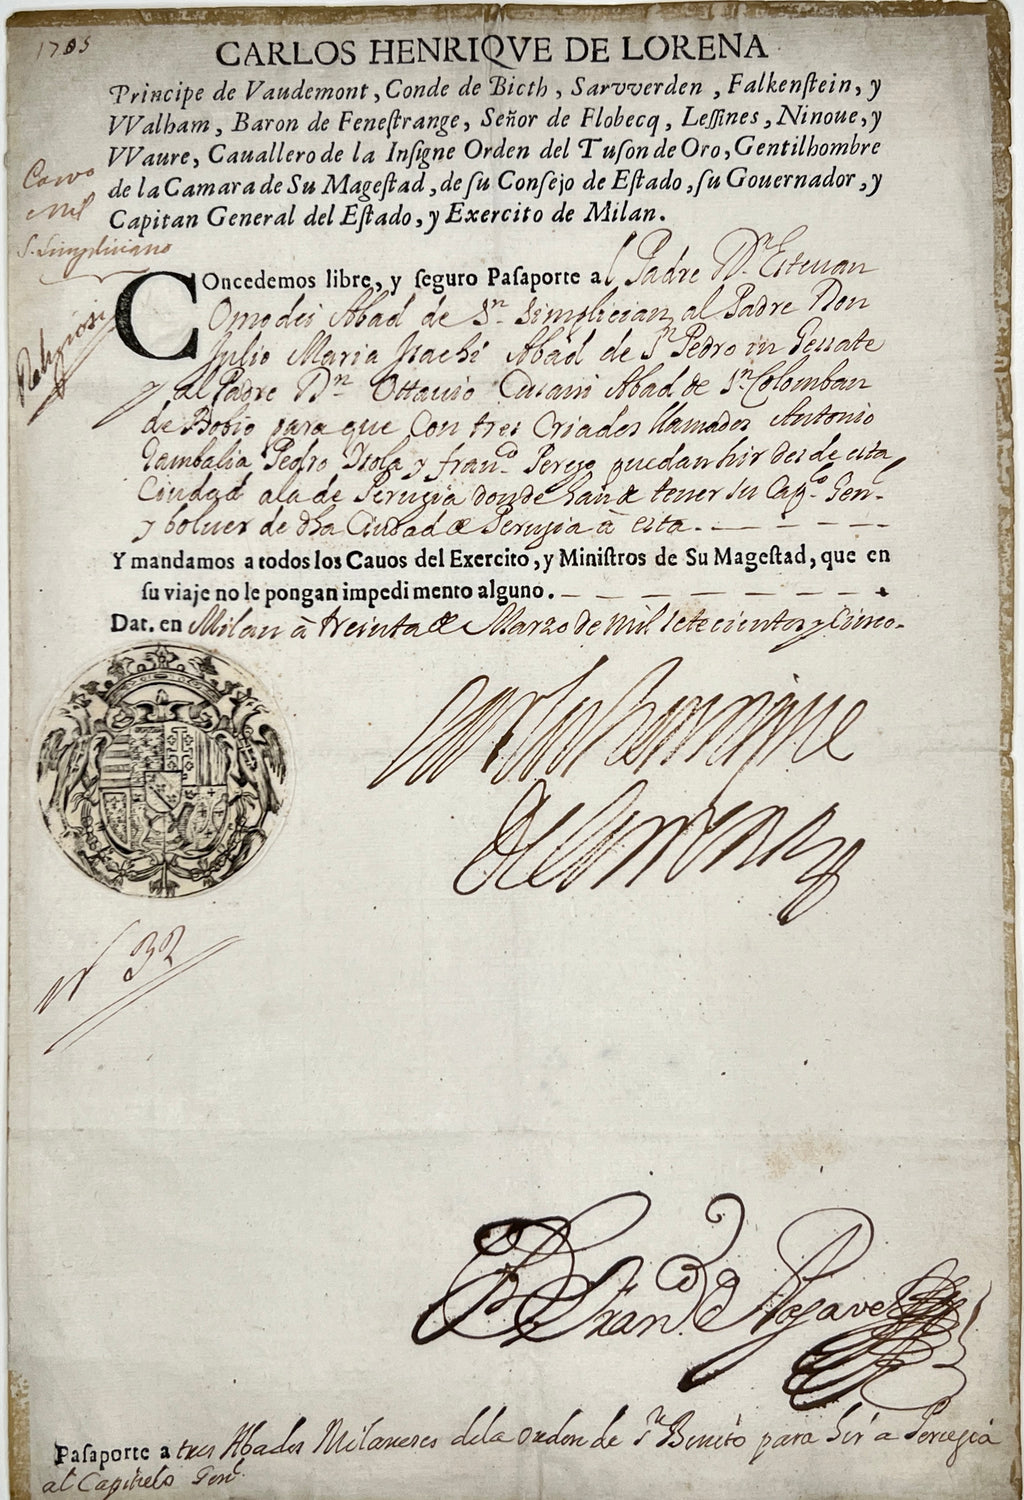 1705
CARLOS HENRIQVE DE LORENA
Principe de Vaudemont, Conde de Bicth, Sarvverden, Falkenſtein, y
VValham, Baron de Feneſtrange, Señor de Flobecq, Leſſines, Ninoue, y
VVaure, Cauallero de la Inſigne Orden del Tuſon de Oro, Gentilhombre
de la Camara de Su Mageſtad, de ſu Conſejo de Eſtado, ſu Gouernador, y
Capitan General del Eſtado, y Exercito de Milan.
Mil
S. Simpliciano
Religiosi
COncedemos libre, y ſeguro Paſaporte al Padre Dn. Esteuan
Omodei Abad de Sn. Simplician, al Padre Don
Julio Maria Abad de Sn Pedro in Gessate
y al Padre Dn Ottauio Cusani Abad de Sn Colomban
de Bobio para que con tres Criados llamados Antonio
Pedro Isola y franco. Perego puedan hir desde esta
Ciudad ala de Perugia donde han de tener su Capo. Genl.
y boluer de dha Ciudad de Perugia â esta.
Y mandamos a todos los Cauos del Exercito, y Miniſtros de Su Mageſtad, que en
ſu viaje no le pongan impedimento alguno.
Dat. en Milan â treinta de Marzo de mil setecientos y Cinco.
Carlos Henrique
de Lorena
No 32
Paſaporte a tres Abades Milaneses dela orden de Sn Benito para hir a Perugia
al Capitulo Genl.